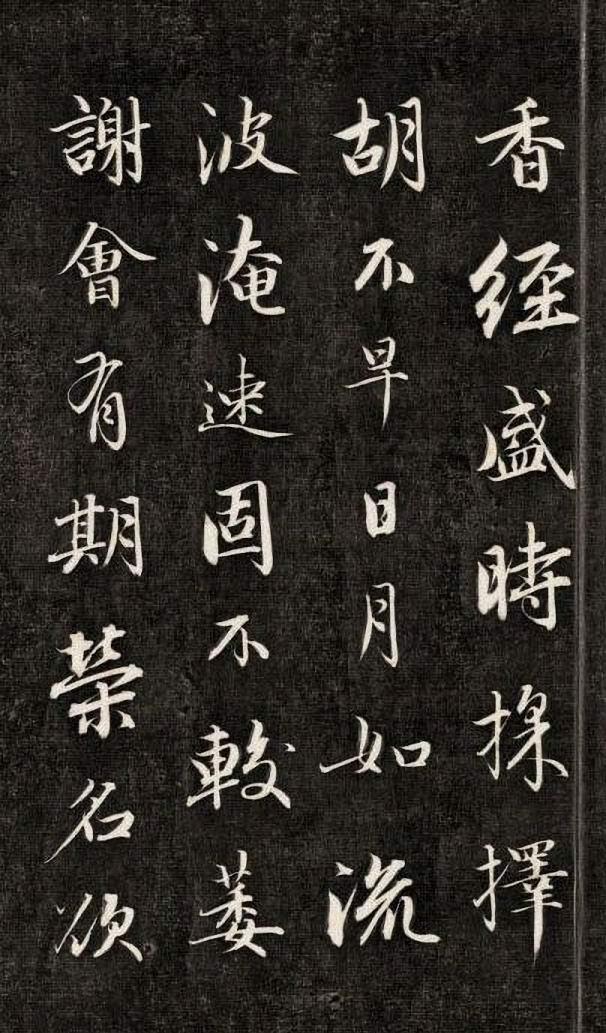 香經盛時採擇
胡不早日月如流
波淹速固不較萎
謝會有期榮名欲